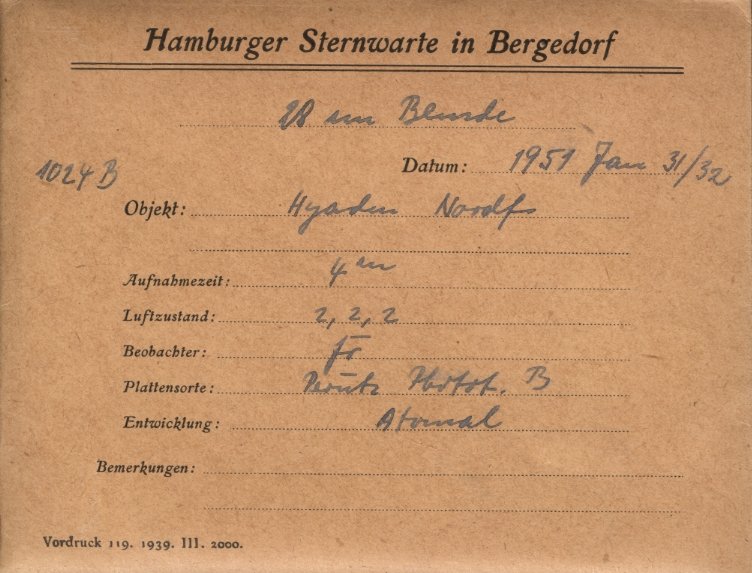 Hamburger Sternwarte in Bergedorf
cm Blende
Datum: 1951 Jan 31/32
1024 B
Objekt: Hyaden Nordf
Aufnahmezeit: 4 m
Luftzustand: 2, 2, 2
Beobachter:
Plattensorte: Perutz B
Entwicklung: Atomal
Bemerkungen:
Vordruck 119. 1939. III. 2000.